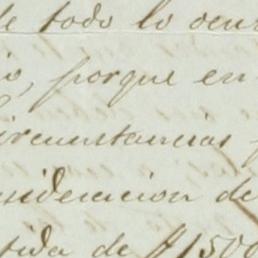 de todo lo ocur
io, porque en
ircunstancias
nsideracion de
tida de $1500